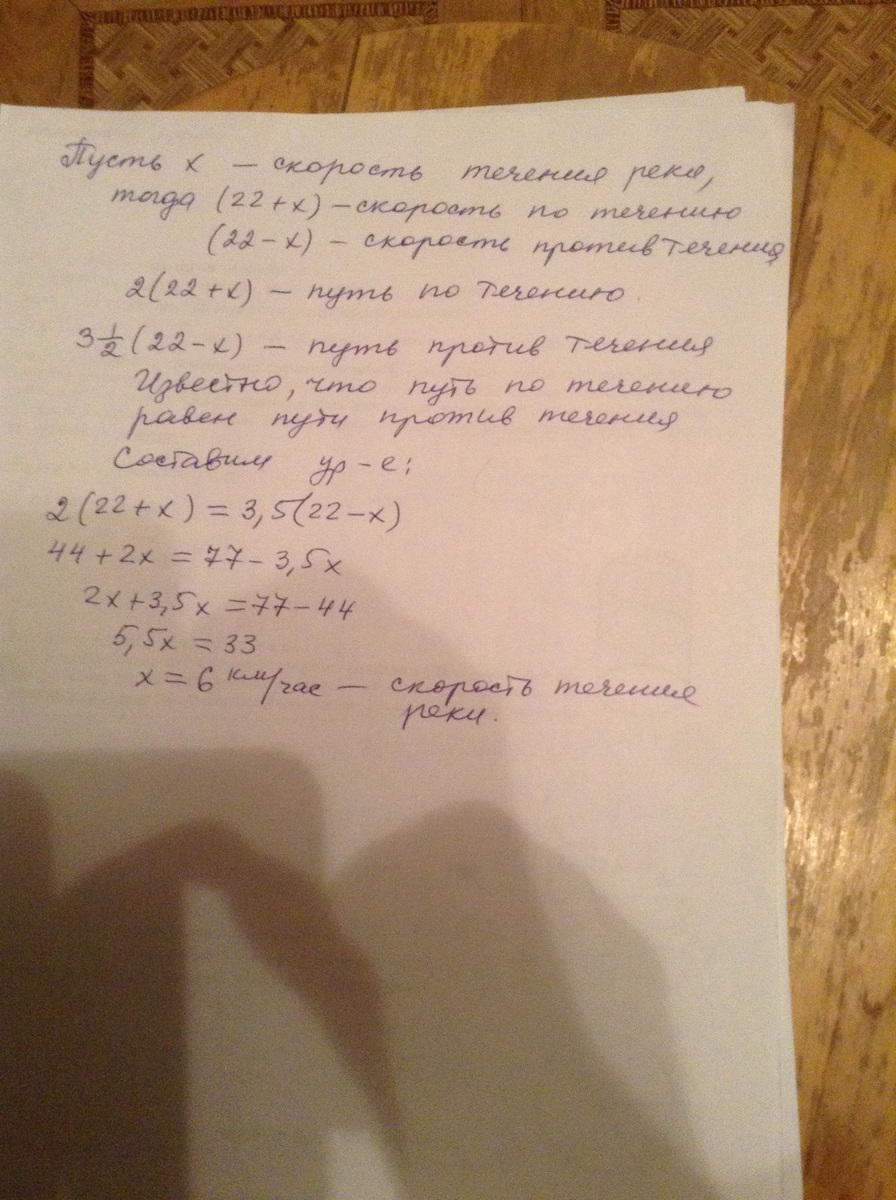 Пусть x – скорость течения реки,
тогда (22+x) – скорость по течению
(22-x) – скорость против течения
2(22+x) – путь по течению.
3 1/2 (22-x) – путь против течения
Известно, что путь по течению
равен пути против течения
Составим ур-е:
2(22+x) = 3,5(22-x)
44+2x = 77-3,5x
2x+3,5x = 77-44
5,5x = 33
x = 6 км/час – скорость течения
реки.